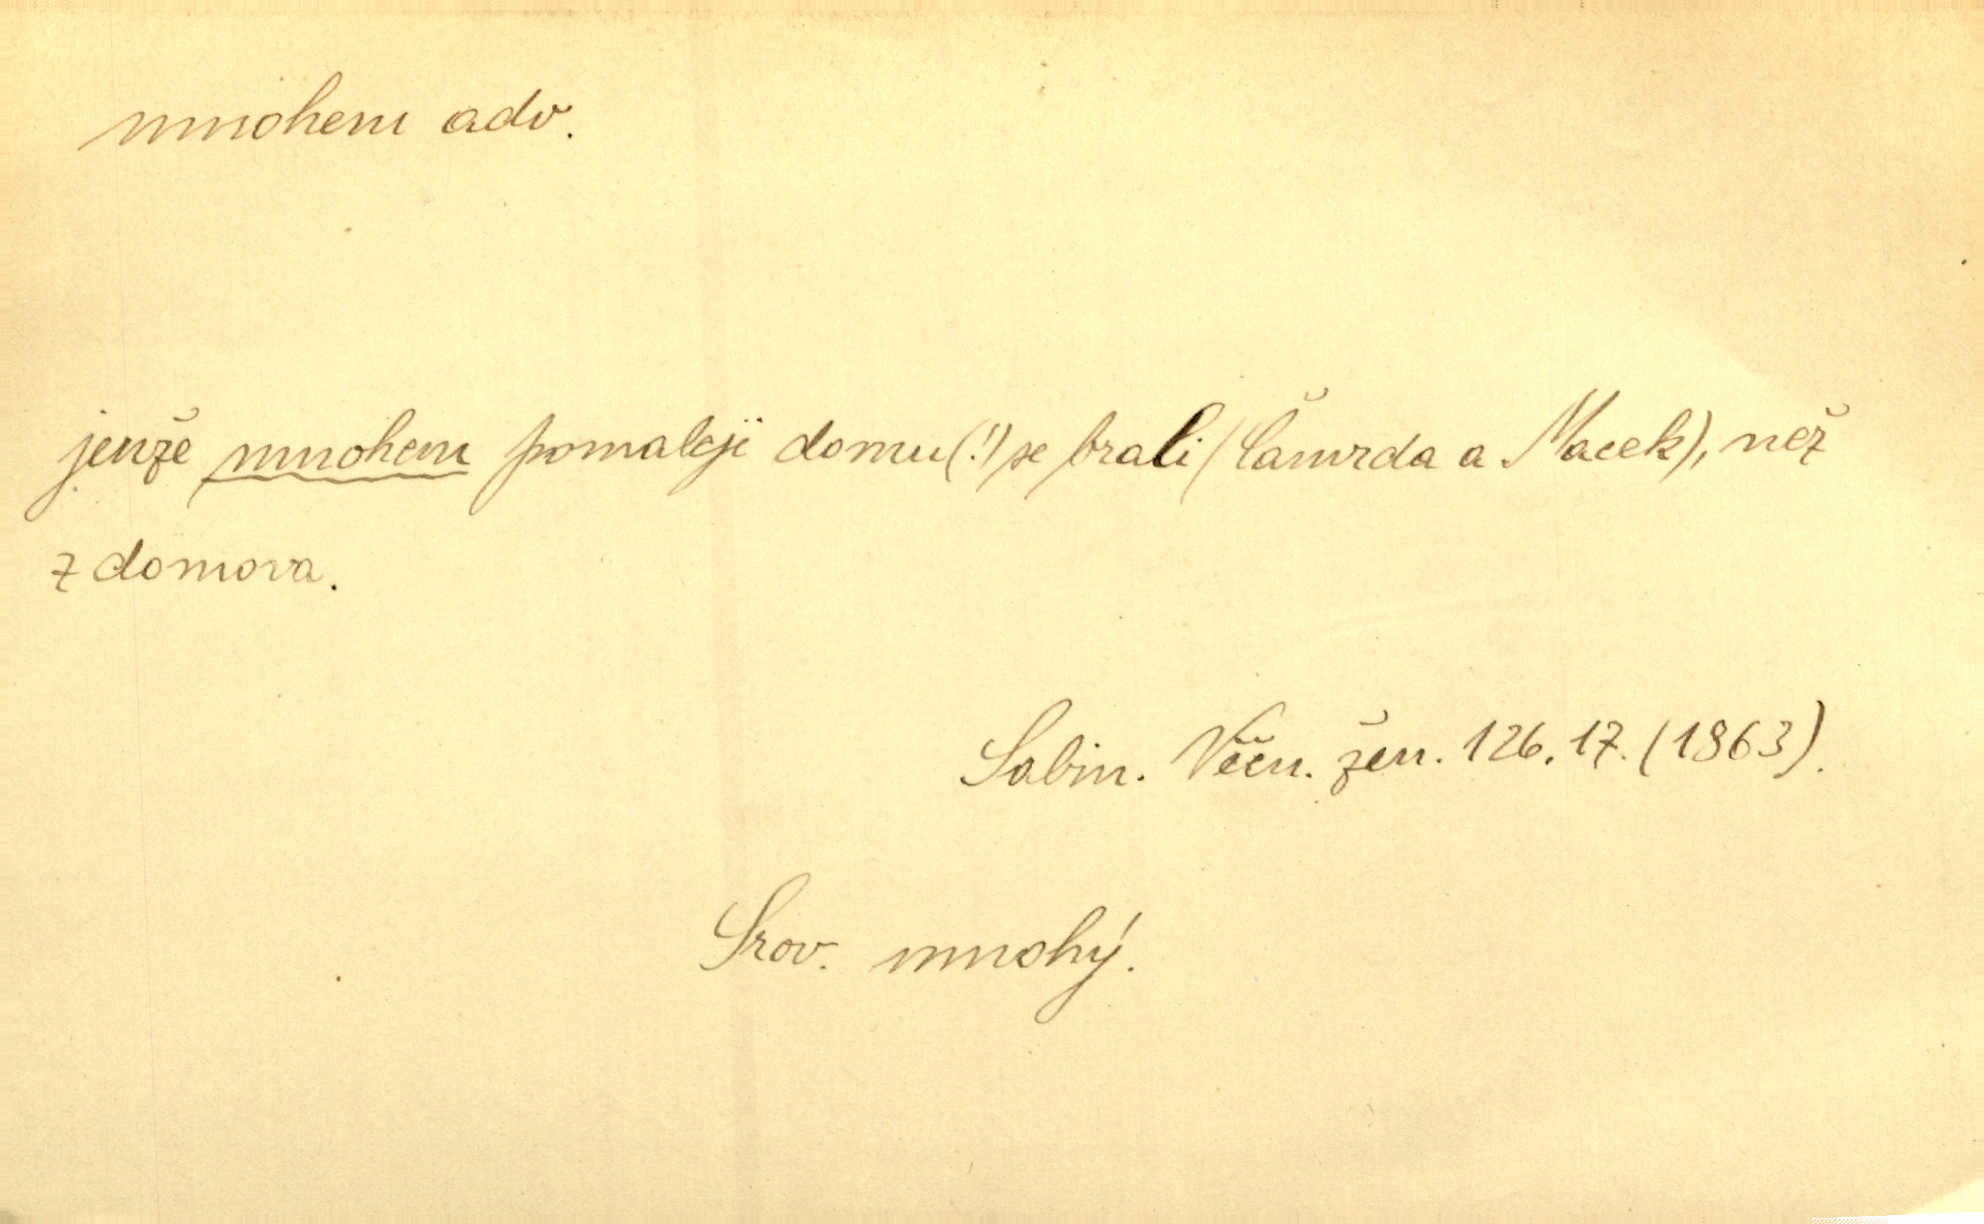 mnohem adv.
jenže mnohem pomaleji domu (!) se brali (Čamrda a Macek), než
z domova.
Sabin. Věčn. žen. 126. 17. (1863).
Srov. mnohý.